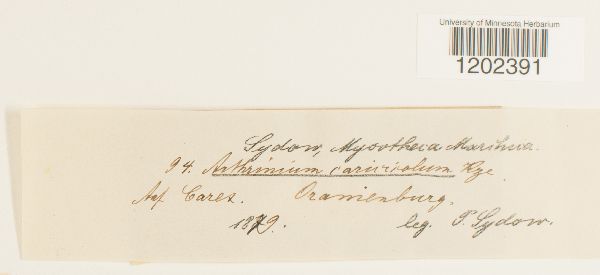 University of Minnesota Herbarium
1202391
Sydow, Mycotheca Marchica.
94. Arthrinium caricicolum Kze.
Auf Carex. Oranienburg.
1879. leg. P. Sydow.